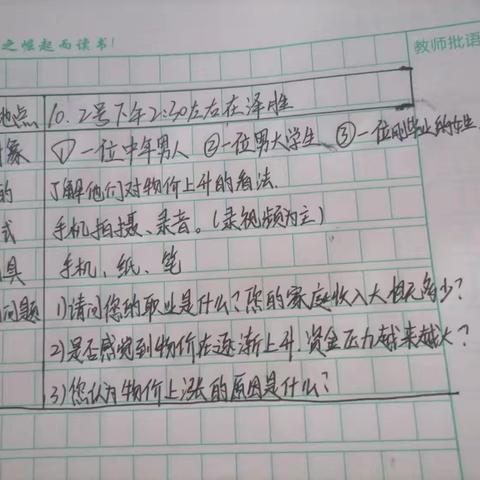 之崛起而读书!
教师批语
地点 10.2号下午2:30左右在泽胜
象 ①一位中年男人 ②一位男大学生 ③一位刚毕业的女生
的 了解他们对物价上升的看法.
式 手机拍摄、录音。(录视频为主)
具 手机、纸、笔
问题 1)请问您的职业是什么?您的家庭收入大概多少?
2)是否感觉到物价在逐渐上升.资金压力越来越大?
3)您认为物价上涨的原因是什么?